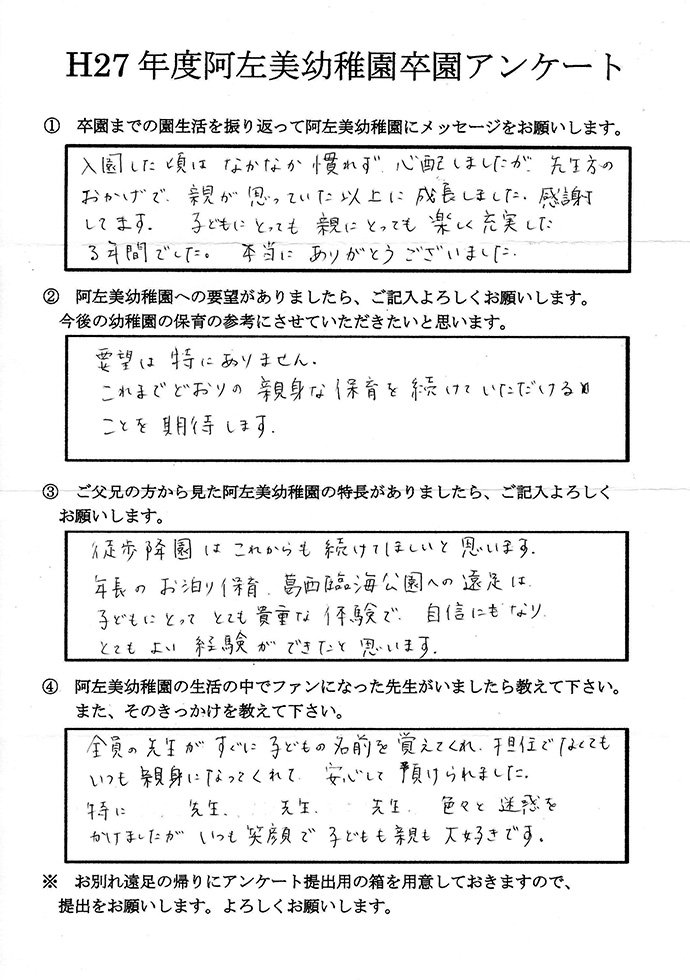 H27 年度阿左美幼稚園卒園アンケート
① 卒園までの園生活を振り返って阿左美幼稚園にメッセージをお願いします。
入園した頃は なかなか 慣れず、心配しましたが、先生方の
おかげで、親が 思っていた以上に 成長しました。感謝
してます。 子どもにとっても 親にとっても 楽しく充実した
3年間でした。 本当に ありがとうございました。
② 阿左美幼稚園への要望がありましたら、ご記入よろしくお願いします。
今後の幼稚園の保育の参考にさせていただきたいと思います。
要望は 特にありません。
これまでどおりの 親身な保育を 続けていただける
ことを期待します。
③ ご父兄の方から見た阿左美幼稚園の特長がありましたら、ご記入よろしく
お願いします。
徒歩降園は これからも 続けてほしいと 思います。
年長の お泊り保育、葛西臨海公園への 遠足は、
子どもにとって とても貴重な 体験で、自信にもなり、
とても よい 経験が できたと 思います。
④ 阿左美幼稚園の生活の中でファンになった先生がいましたら教えて下さい。
また、そのきっかけを教えて下さい。
全員の先生が すぐに 子どもの 名前を 覚えてくれ、担任でなくても
いつも 親身になってくれて、安心して 預けられました。
特に 先生、 先生、 先生、 色々と 迷惑を
かけましたが いつも 笑顔で 子どもも 親も 大好きです。
※ お別れ遠足の帰りにアンケート提出用の箱を用意しておきますので、
提出をお願いします。よろしくお願いします。